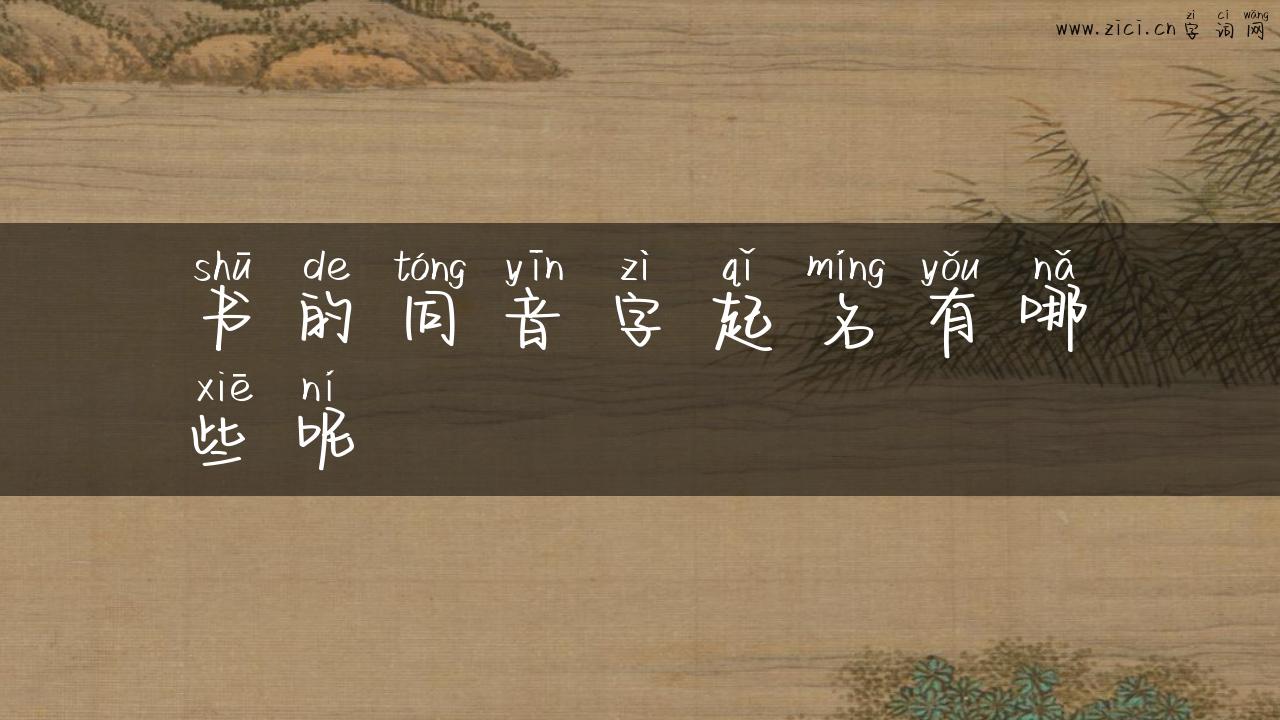 zì cí wǎng
www.zici.cn 字 词 网
shū de tóng yīn zì qǐ míng yǒu nǎ
书 的 同 音 字 起 名 有 哪
xiē ní
些 呢